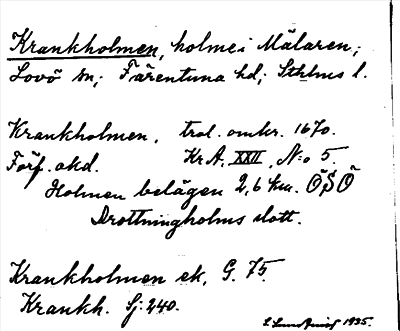 Krankholmen, holme i Mälaren;
Lovö sn; Färentuna hd; Sthlms l.
Krankholmen, trol. omkr. 1670.
Förf. okd. Kr A. XXII, N:o 5.
Holmen belägen 2,6 km. ÖSÖ
Drottningholms slott.
Krankholmen ek, G. 75.
Krankh. Sj: 240.
1935.